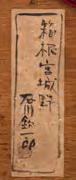 箱根宮城野
石川欽一郎